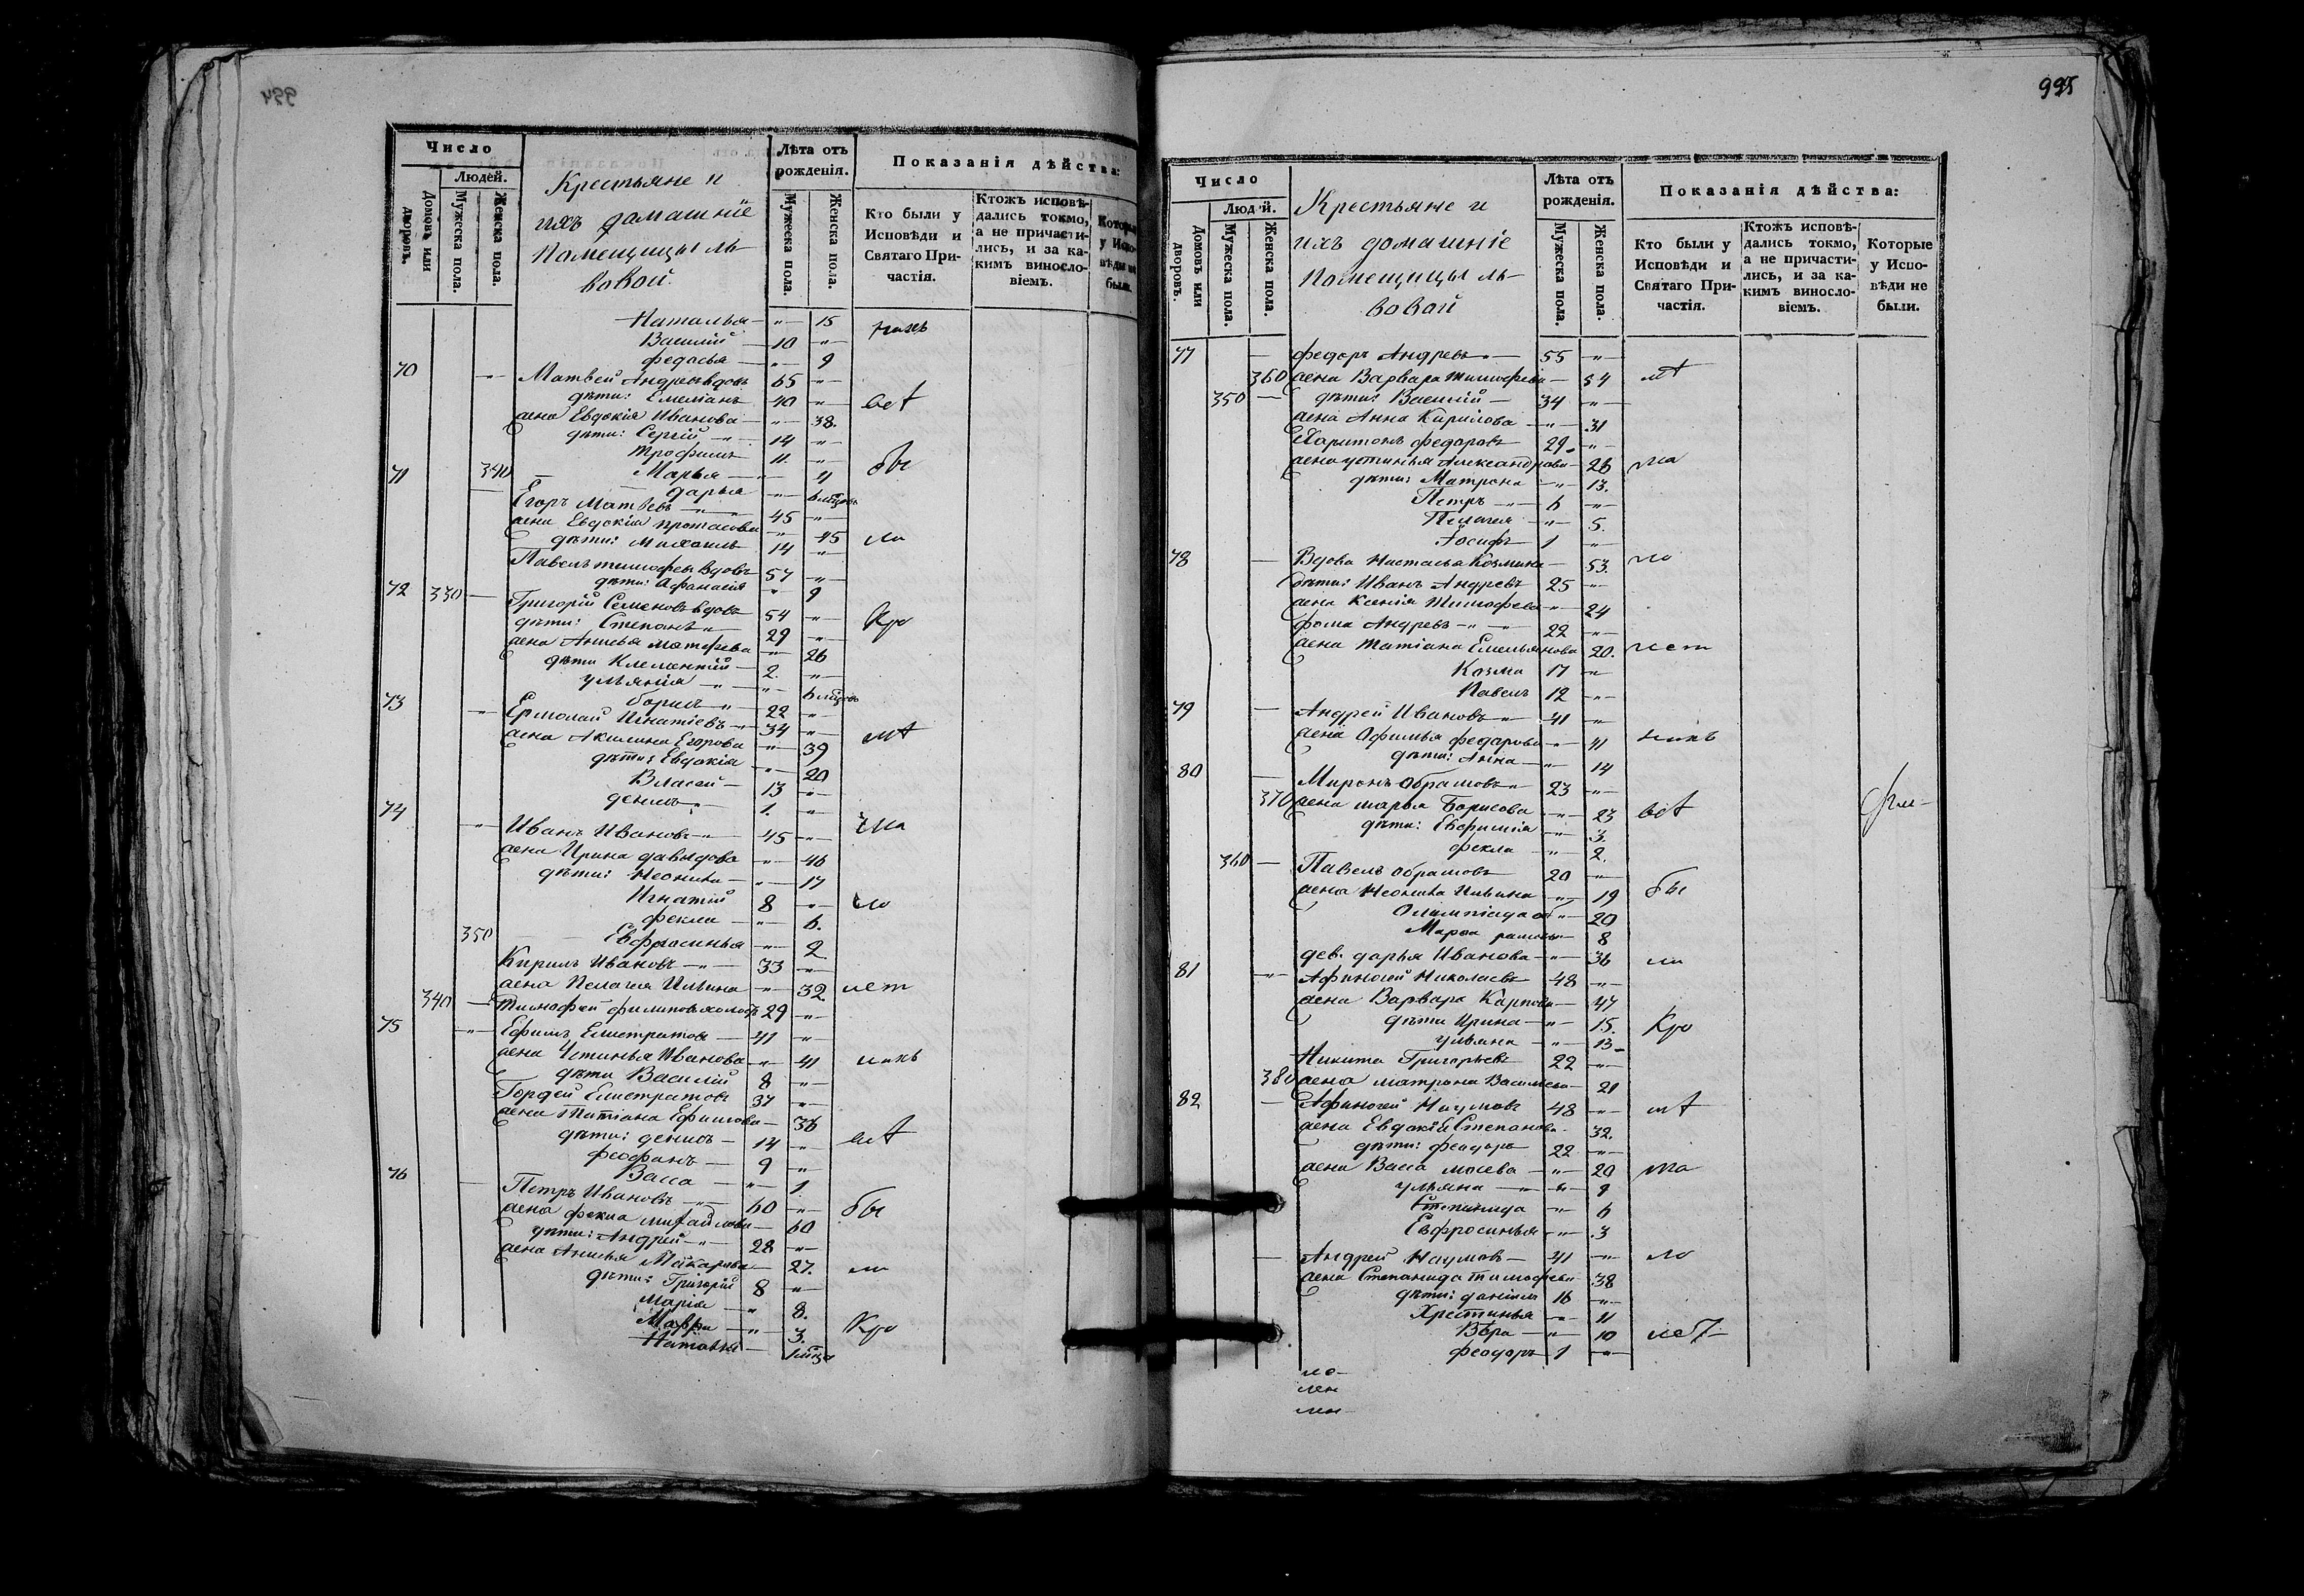 994
Число
Людей.
Домовъ или дворовъ.
Мужеска пола.
Женска пола.
Крестьяне и
ихъ домашніе
помещицы Ль-
вовой.
Лѣта отъ
рожденія.
Мужеска пола.
Женска пола.
Показанія дѣйства:
Кто были у
Исповѣди и
Святаго При-
частія.
Ктожъ исповѣ-
дались токмо,
а не причасти-
лись, и за ка-
кимъ винословіемъ.
Которые
у Испо-
вѣди не
были.
Наталья — " — 15
Василій — 10 — "
Федосья — " — 9
70 Матвей Андреевъ вдовъ 65 — "
дѣти: Емеліанъ 40 — "
жена Евдокія Иванова — " — 38.
дѣти: Сергій — 14 — "
Трофимъ 11. — "
340 Марья — " — 4
71 Дарья — " — 6 мѣцовъ
Егоръ Матвѣевъ 45 — "
жена Евдокія — " — 45
дѣти: Михаилъ 14 — "
Павелъ Тимофеевъ вдовъ 57 — "
дѣти: Афанасія " 9
72 330 Григорій Семеновъ вдовъ 54 — "
дѣти: Степанъ 29 — "
жена Анисья — " — 26
дѣти Клементій — 2. — "
Ульянія — " — 6 мѣцовъ
Борисъ 22 — "
73 Ермолай Игнатіевъ 34 — "
жена Акилина Егорова — " — 39
дѣти: Евдокія — " — 20
Власей — 13 — "
Денисъ 1. — "
74 Иванъ Ивановъ 45 — "
жена Ирина Давыдова — " — 46
дѣти: Неонила — " — 17
Игнатій 8 — "
Фекла — " — 6.
350 Евфросинья — " — 2
Кирилъ Ивановъ 33 — "
жена Пелагея Ильина — " — 32
340 Тимофей Филиповъ холостъ 29 — "
75 Ефимъ Елистратовъ 41 — "
жена Устинья Иванова — " — 41
дѣти Василій 8 — "
Гордей Елистратовъ 37 — "
жена Татіана Ефимова — 36
дѣти: Денисъ — 14 — "
Феофанъ — 9 — "
Васса — " — 1
76 Петръ Ивановъ 60 — "
жена Фекла Михайлова — 60
дѣти: Андрей 28 — "
жена Анисья Макарова — 27.
дѣти: Григорій 8 — "
Марія — " 8.
Мавра — " — 3.
Наталья — 1 мѣца
995
Число
Людей.
Домовъ или дворовъ.
Мужеска пола.
Женска пола.
Крестьяне и
ихъ домашніе
помещицы Ль-
вовой
Лѣта отъ
рожденія.
Мужеска пола.
Женска пола.
Показанія дѣйства:
Кто были у
Исповѣди и
Святаго При-
частія.
Ктожъ исповѣ-
дались токмо,
а не причасти-
лись, и за ка-
кимъ винословіемъ.
Которые
у Испо-
вѣди не
были.
77 Федоръ Андреевъ — 55 — "
360 жена Варвара Тимофеева — 54
350 дѣти: Василій — 34 — "
жена Анна Кирилова — " — 31
Харитонъ Федоровъ 29 — "
жена Устинья Александрова — 26
дѣти: Матрона — " — 13.
Петръ — 6 — "
Пелагея — " — 5.
Іосифъ 1 — "
78 Вдова Настасья Козмина — 53.
дѣти: Иванъ Андреевъ 25 — "
жена Ксенія Тимофеева — " — 24
Фома Андреевъ 22 — "
жена Татіана Емельянова 20.
Козма 17 — "
Павелъ 12 — "
79 Андрей Ивановъ 41 — "
жена Офимья Федорова — " — 41
дѣти: Анна — " — 14
80 Миронъ Обрамовъ 23 — "
370 жена Марья Борисова — " — 23
дѣти: Евфимія — " — 3.
Фекла — " — 2.
360 Павелъ Обрамовъ 20 — "
жена Неонила Ильина — " — 19
Олимпіада — " — 20
Марфа — 8
дев. Дарья Иванова — " — 36
81 Афиногей Николаевъ 48 — "
жена Варвара Карпова — 47
дѣти Ирина — " — 15.
Ульяна — " — 13
Никита Григорьевъ 22 — "
380 жена Матрона Васильева — 21
82 Афиногей Наумовъ 48 — "
жена Евдокія Степанова — 32.
дѣти: Феодоръ 22 — "
жена Васса — " — 20
Ульяна — " — 9
Степанида — " — 6
Евфросинья — " — 3
Андрей Наумовъ — 41 — "
жена Степанида Тимофеева — 38
дѣти: Даніилъ 16 — "
Хрестинья — " — 11
Вѣра — " — 10
Феодоръ 1 — "